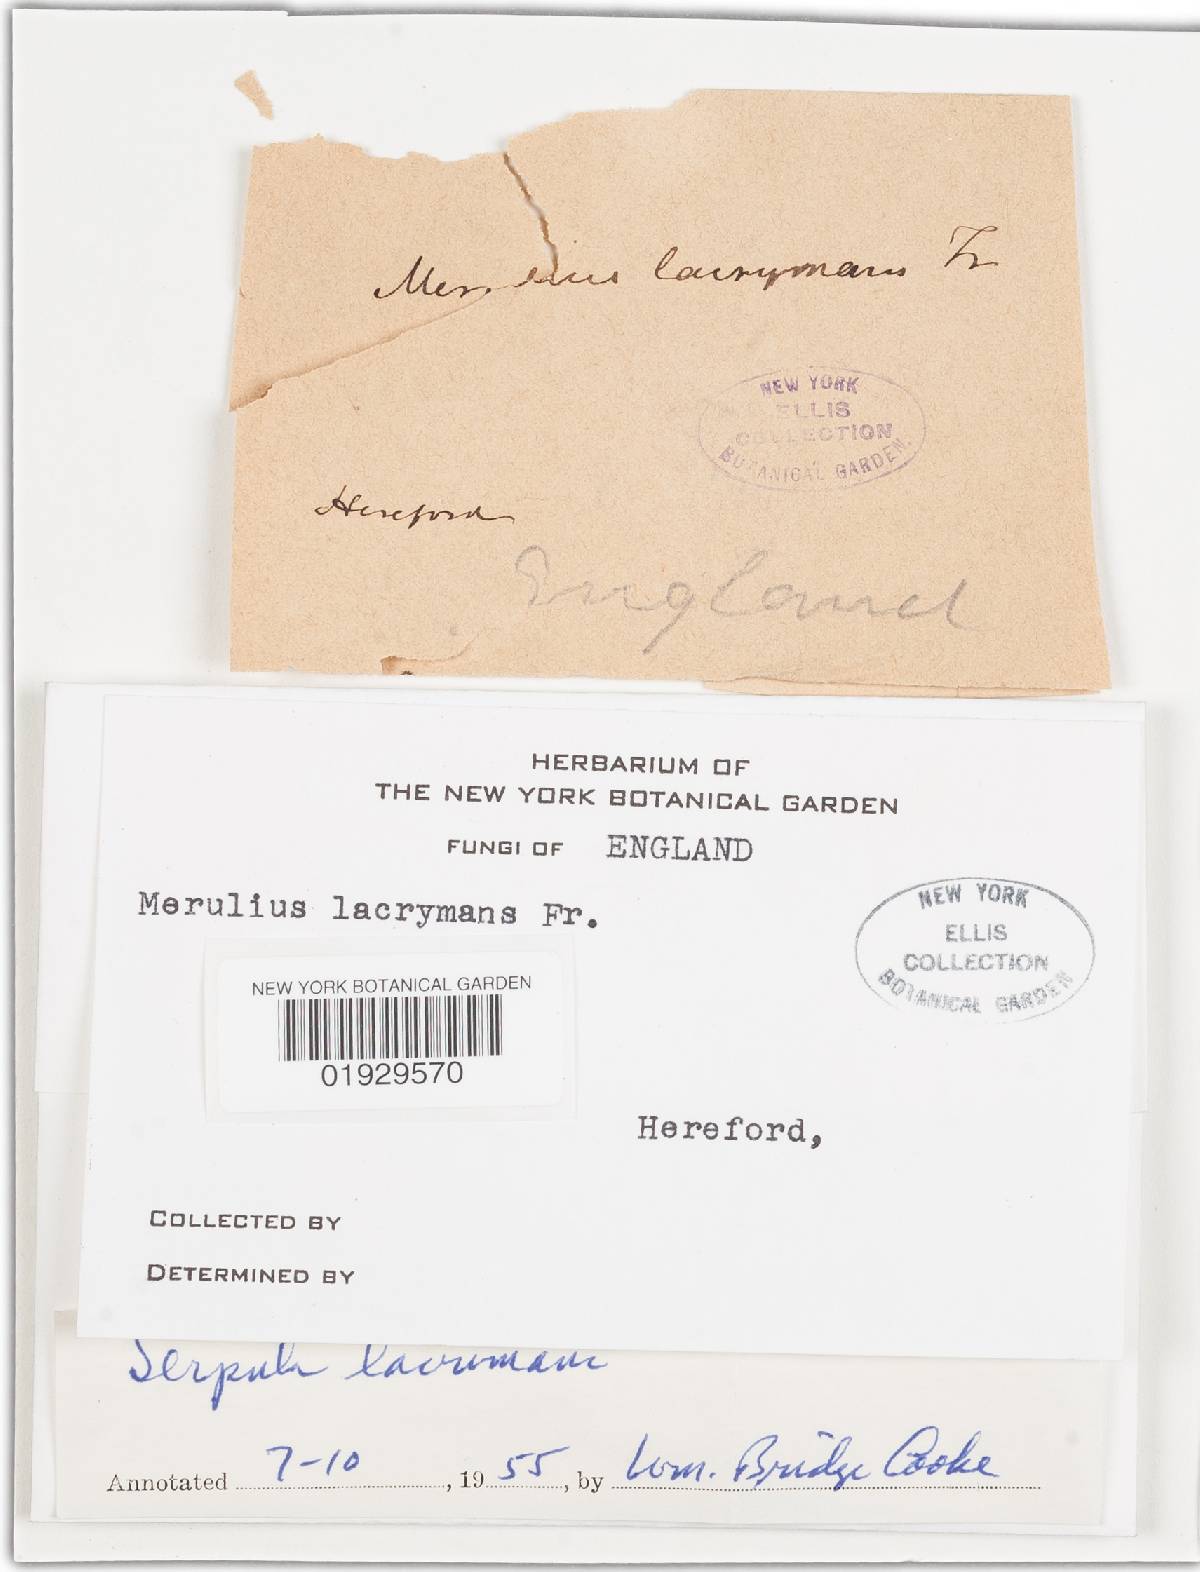 Merulius lacrymans Fr
NEW YORK
ELLIS
COLLECTION
BOTANICAL GARDEN.
Hereford
England
HERBARIUM OF
THE NEW YORK BOTANICAL GARDEN
FUNGI OF ENGLAND
Merulius lacrymans Fr.
NEW YORK
ELLIS
COLLECTION
BOTANICAL GARDEN
NEW YORK BOTANICAL GARDEN
01929570
Hereford,
COLLECTED BY
DETERMINED BY
Serpula lacrymans
Annotated 7-10, 1955, by Wm. Bridge Cooke